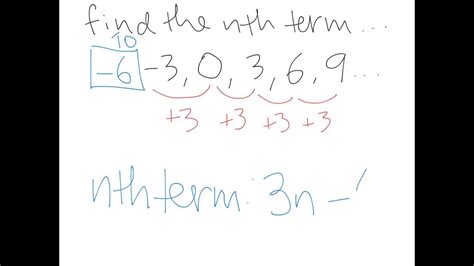 find the nth term ...
10
-6 -3, 0, 3, 6, 9 ...
+3 +3 +3 +3
nth term: 3n -